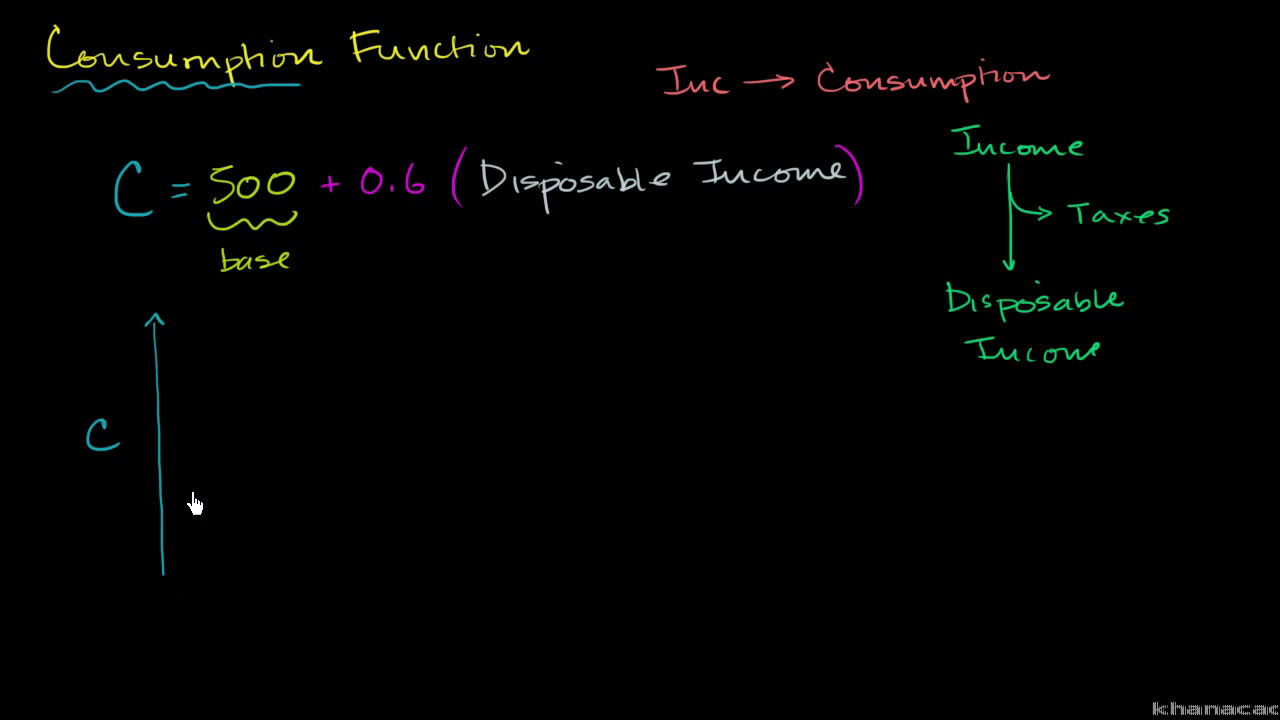 Consumption Function
Inc → Consumption
C = 500 + 0.6 (Disposable Income)
base
Income
Taxes
Disposable
Income
C
khanacac